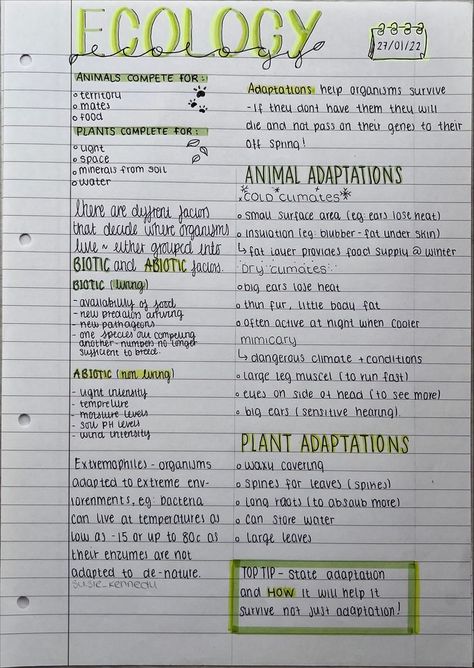 ECOLOGY
ecology
27/01/22
ANIMALS COMPETE FOR:
o territory
o mates
o food
PLANTS COMPLETE FOR:
o light
o space
o minerals from soil
o water
there are diffrent factors
that decide where organisms
live ~ either grouped into
BIOTIC and ABIOTIC factors.
BIOTIC (living)
- availability of food
- new predators arriving
- new pathogens
- one species out competing
another - numbers no longer
sufficient to breed.
ABIOTIC (non living)
- light intensity
- tempreture
- moisture levels
- soil PH levels
- wind intensity
Extremophiles - organisms
adapted to extreme env-
iorenments, eg: bacteria
can live at temperatures as
low as -15 or up to 80c as
their enzymes are not
adapted to de-nature.
susie_kennedy
Adaptations help organisms survive
- If they dont have them they will
die and not pass on their genes to their
off spring!
ANIMAL ADAPTATIONS
*COLD climates*
o small surface area (eg. ears lose heat)
o insulation (eg: blubber - fat under skin)
↳ fat layer provides food supply @ winter
DRY climates
o big ears lose heat
o thin fur, little body fat
o often active at night when cooler
mimicary
↳ dangerous climate + conditions
o large leg muscel (to run fast)
o eyes on side of head (to see more)
o big ears (sensitive hearing)
PLANT ADAPTATIONS
o waxy covering
o spines for leaves (spines)
o long roots (to absoub more)
o can store water
o large leaves
TOP TIP - state adaptation
and HOW it will help it
survive not just adaptation!